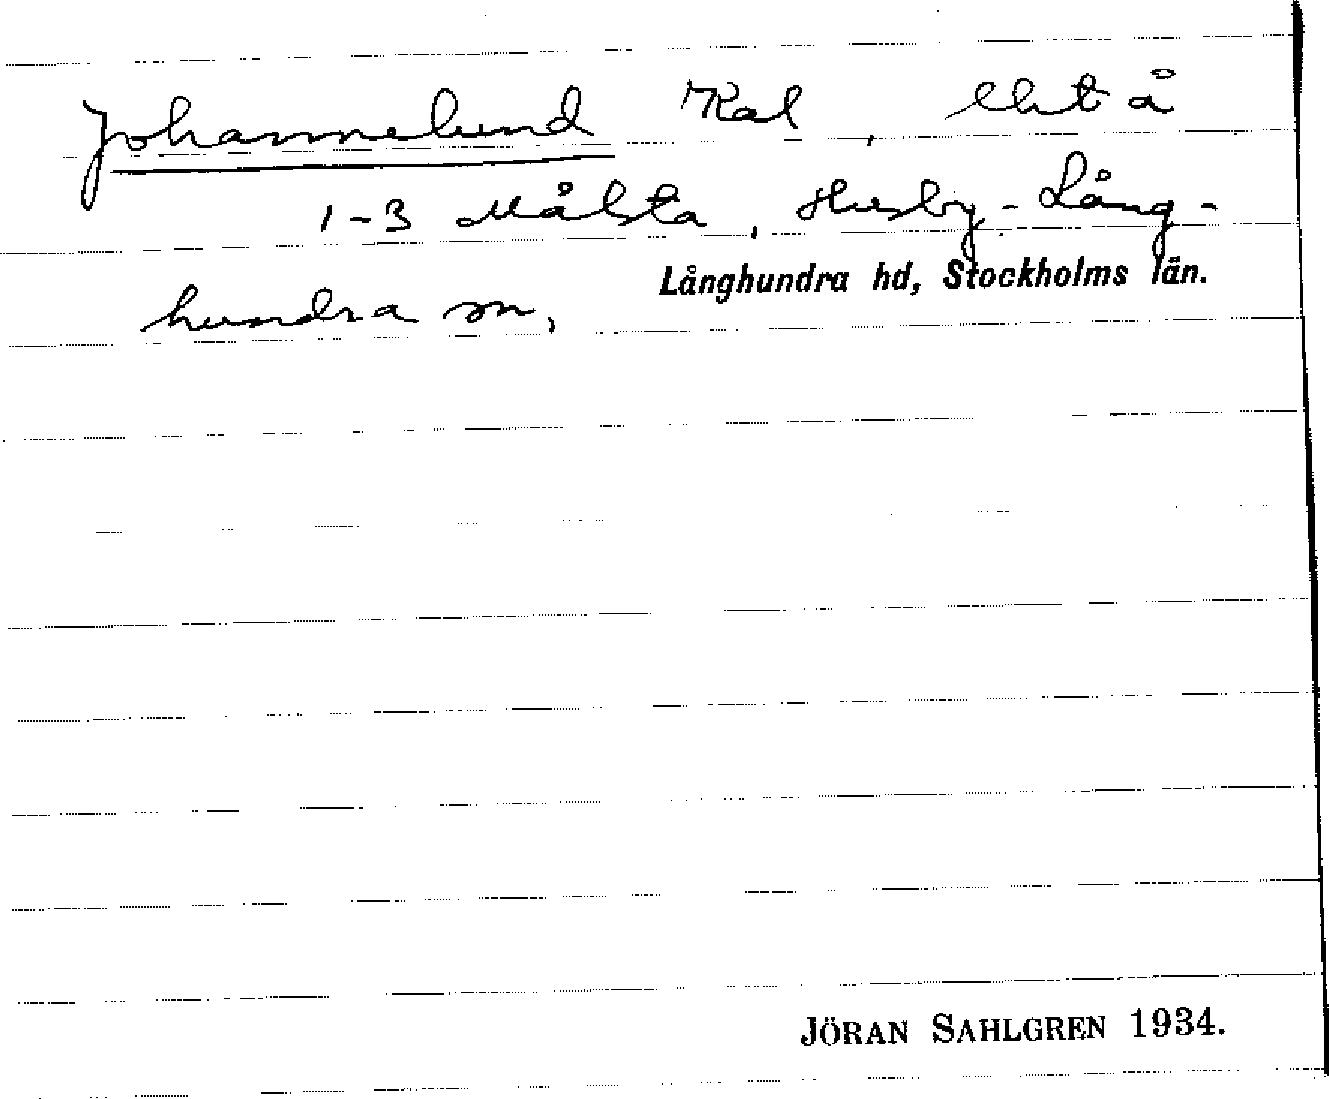 Johannelund Kal, lht å
1-3 Målsta, Husby-Lång-
hundra sn, Långhundra hd, Stockholms län.
JÖRAN SAHLGREN 1934.